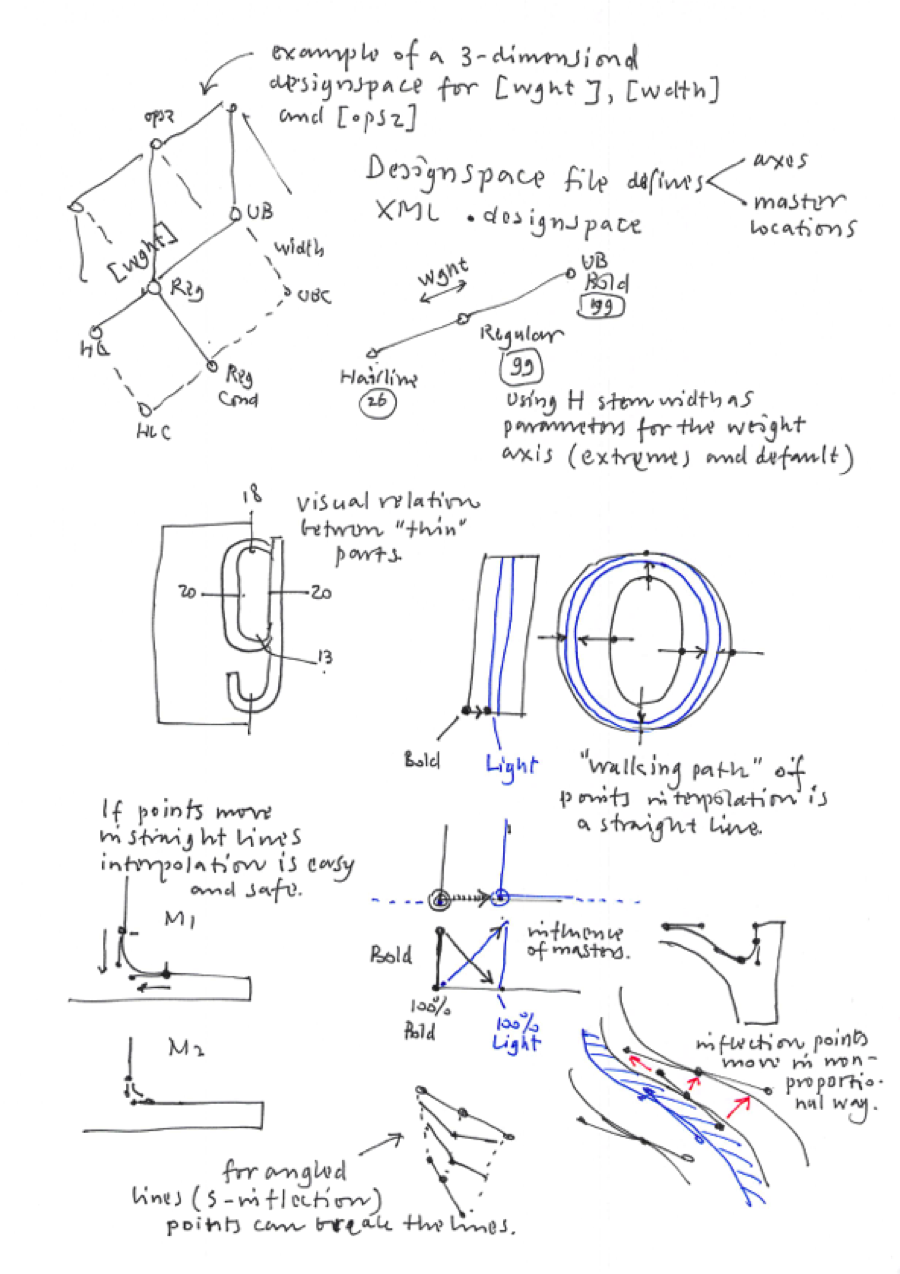 example of a 3-dimensional
designspace for [wght], [wdth]
and [opsz]
opsz
UB
[wght]
width
Reg
UBC
HL
Reg
Cond
HLC
Designspace file defines
XML .designspace
axes
master
locations
wght
UB
Bold
199
Regular
99
Hairline
26
using H stem width as
parameters for the weight
axis (extremes and default)
18
visual relation
between "thin"
parts.
20
20
13
Bold
Light
"walking path" of
points interpolation is
a straight line.
If points move
in straight lines
interpolation is easy
and safe.
M1
Bold
influence
of masters.
100%
Bold
100%
Light
M2
inflection points
move in non-
proportio-
nal way.
for angled
lines (S-inflection)
points can break the lines.